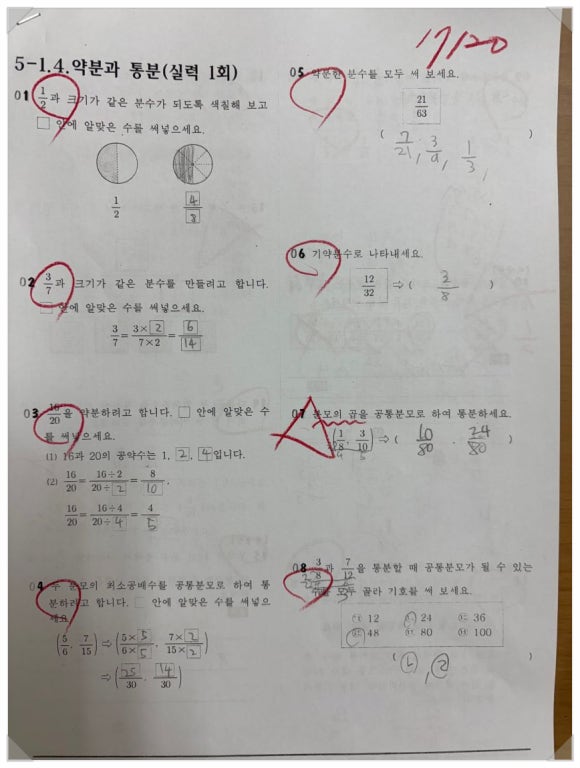 17/20
5-1.4.약분과 통분(실력 1회)
01 1/2과 크기가 같은 분수가 되도록 색칠해 보고
□ 안에 알맞은 수를 써넣으세요.
1/2 4/8
02 3/7과 크기가 같은 분수를 만들려고 합니다.
□ 안에 알맞은 수를 써넣으세요.
3/7 = 3×2/7×2 = 6/14
03 16/20을 약분하려고 합니다. □ 안에 알맞은 수
를 써넣으세요.
(1) 16과 20의 공약수는 1, 2, 4입니다.
(2) 16/20 = 16÷2/20÷2 = 8/10,
16/20 = 16÷4/20÷4 = 4/5
04 두 분모의 최소공배수를 공통분모로 하여 통
분하려고 합니다. □ 안에 알맞은 수를 써넣으
세요.
(5/6, 7/15) ⇒ (5×5/6×5, 7×2/15×2)
⇒ (25/30, 14/30)
05 약분한 분수를 모두 써 보세요.
21/63
( 7/21, 3/9, 1/3, )
06 기약분수로 나타내세요.
12/32 ⇒ ( 3/8 )
07 분모의 곱을 공통분모로 하여 통분하세요.
(1/8, 3/10) ⇒ ( 10/80 , 24/80 )
08 3/8과 7/12을 통분할 때 공통분모가 될 수 있는
수를 모두 골라 기호를 써 보세요.
㉠ 12 ㉡ 24 ㉢ 36
㉣ 48 ㉤ 80 ㉥ 100
( ㉡, ㉣ )